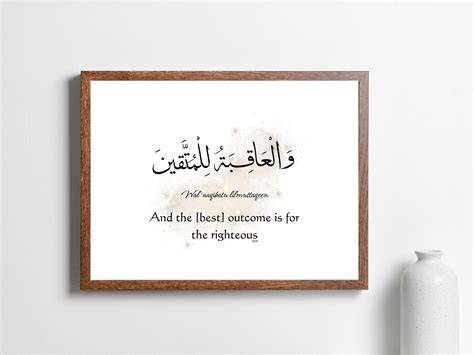 وَالْعَاقِبَةُ لِلْمُتَّقِينَ
Wal 'aaqibatu lilmuttaqeen
And the [best] outcome is for
the righteous